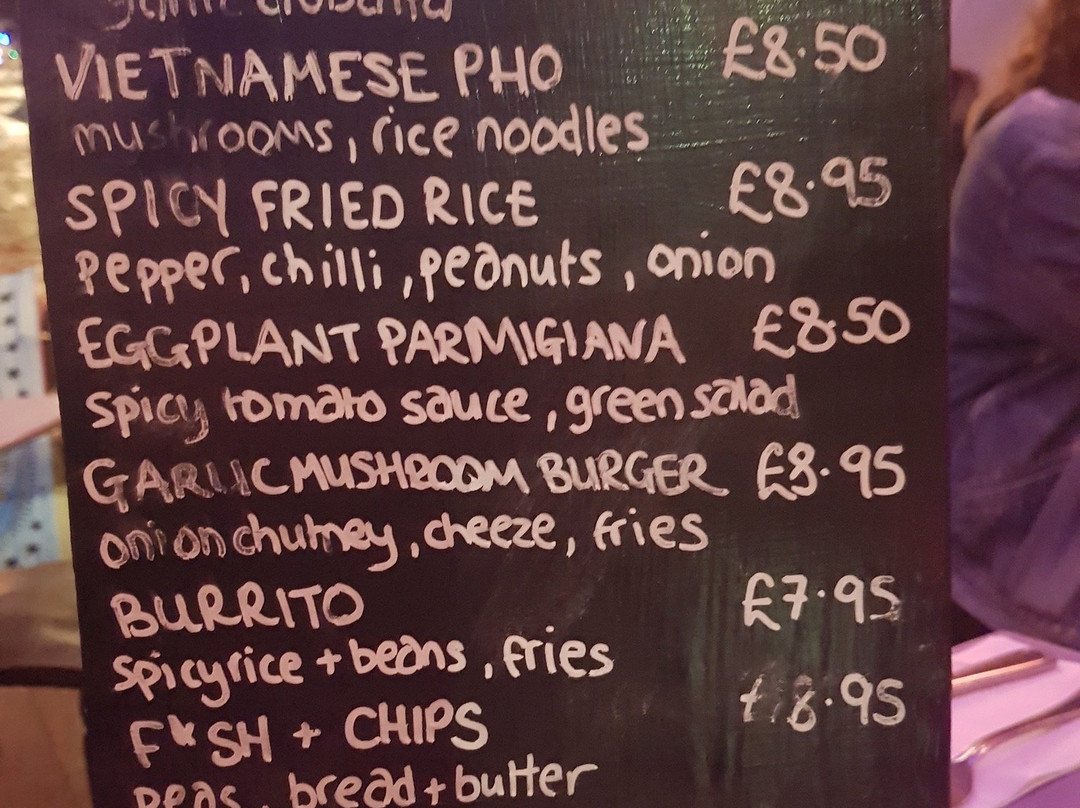 VIETNAMESE PHO £8.50
mushrooms, rice noodles
SPICY FRIED RICE £8.95
pepper, chilli, peanuts, onion
EGGPLANT PARMIGIANA £8.50
spicy tomato sauce, green salad
GARLIC MUSHROOM BURGER £8.95
onion chutney, cheeze, fries
BURRITO £7.95
spicy rice + beans, fries
F*SH + CHIPS £8.95
peas, bread + butter